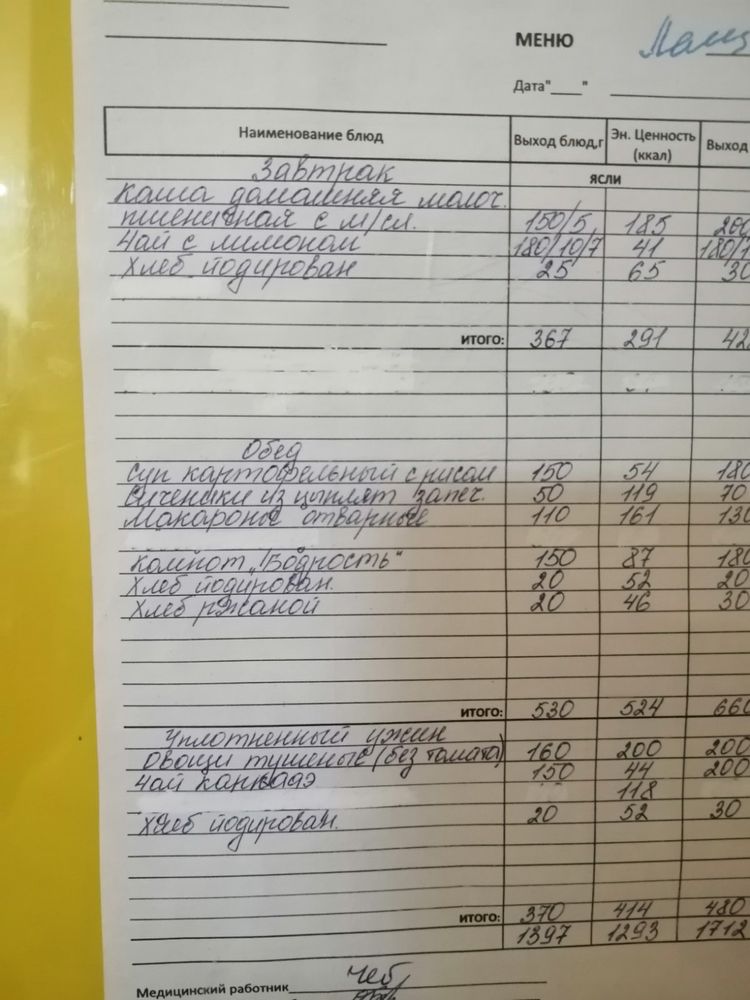 МЕНЮ
Дата"____"
Наименование блюд Выход блюд,г Эн. Ценность (ккал) Выход
Завтрак ясли
Каша домашняя молоч.
пшеничная с м/сл. 150/5 185 200
Чай с лимоном 180/10/7 41 180/1
Хлеб йодирован 25 65 30
итого: 367 291 42
Обед
Суп картофельный с рисом 150 54 180
из цыплят запеч. 50 119 70
Макароны отварные 110 161 130
Компот „Бодрость“ 150 87 180
Хлеб йодирован. 20 52 20
Хлеб ржаной 20 46 30
итого: 530 524 660
Уплотненный ужин
Овощи тушеные (без томата) 160 200 200
Чай каркадэ 150 44 200
118
Хлеб йодирован. 20 52 30
итого: 370 414 480
1397 1293 1712
Медицинский работник Чеб